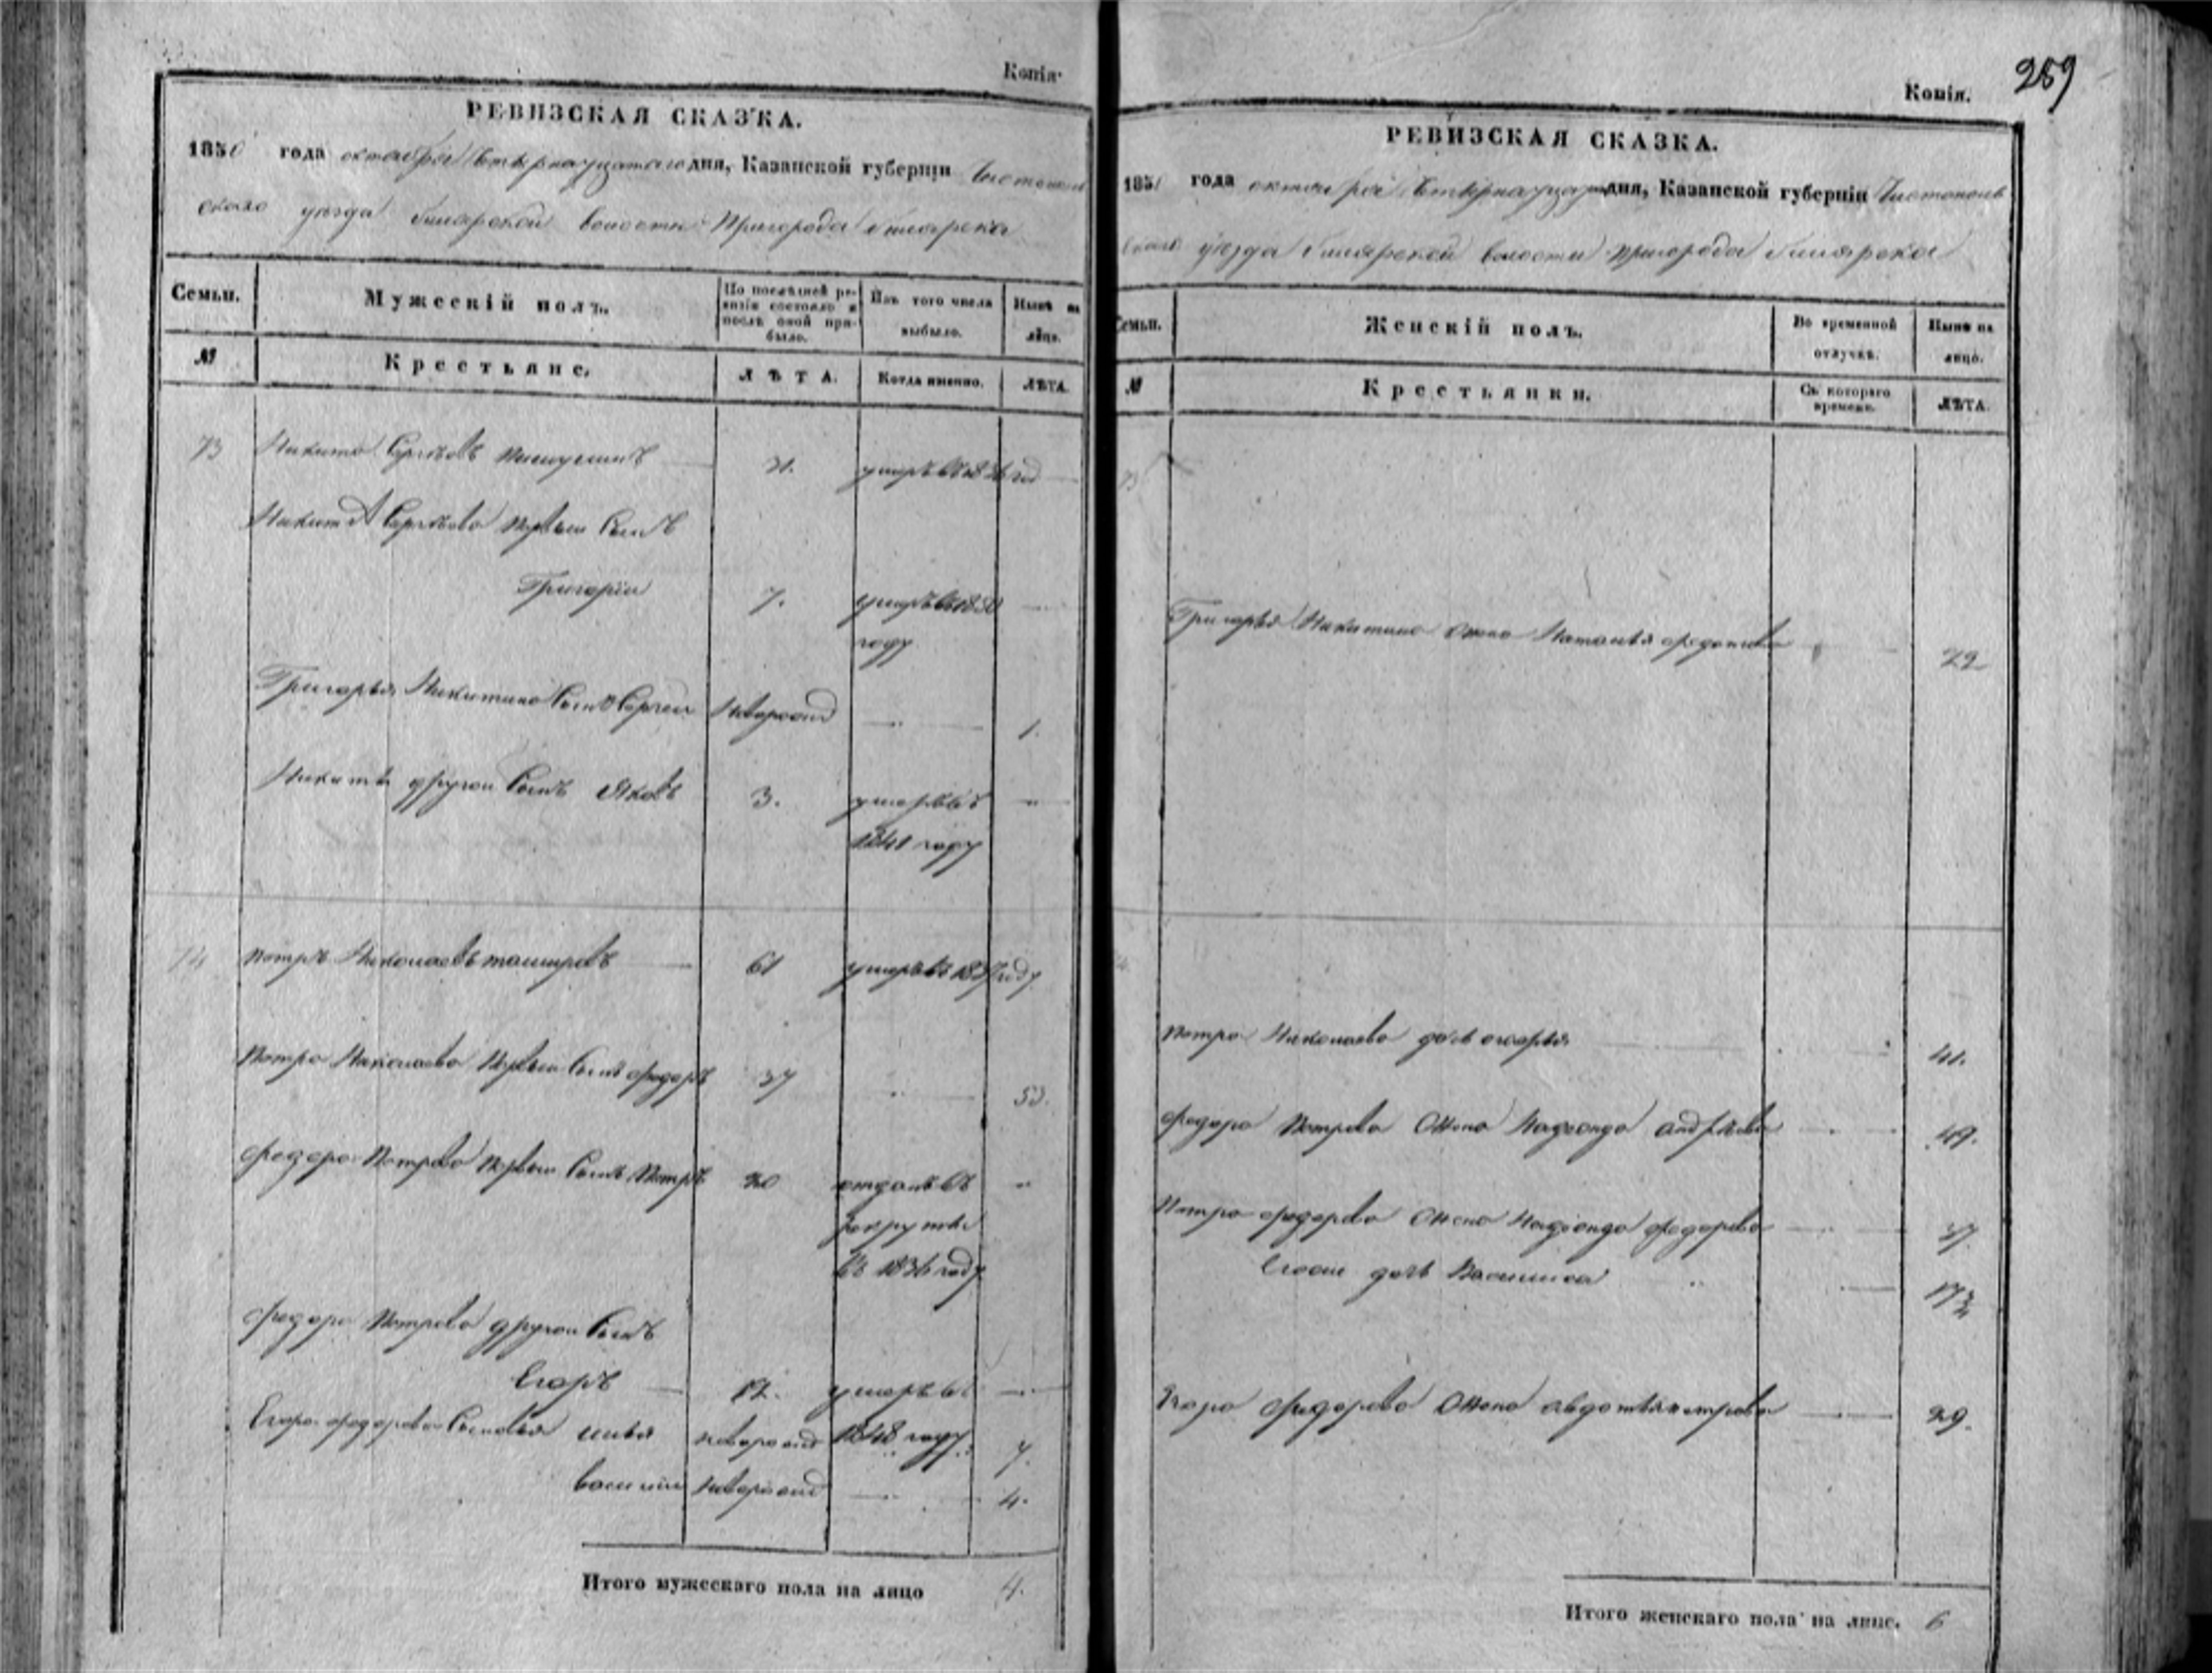 Копія.
РЕВИЗСКАЯ СКАЗКА.
1850 года октября дня, Казанской губерніи Чистополь
скаго уезда Билярской волости Пригорода Билярска
Семьи. Мужескій полъ. По послѣдней ре-
визіи состояло и
послѣ оной при-
было. Изъ того числа
выбыло. Нынѣ на
лицо.
№ Крестьяне. ЛѢТА. Когда именно. ЛѢТА.
73 Никита Сергѣевъ 21. умеръ въ год
Никита Сергѣева первый Сынъ
Григорій 7. умеръ в 1850
году
Григорья Никитина Сынъ Сергей Новорожд 1.
Никиты другой Сынъ Яковъ 3. умеръ въ
1841 году
74 Петръ Николаевъ 61 умеръ въ году
Петра Николаева Первый Сынъ Федоръ 37 53.
Федора Петрова Первый Сынъ Петръ 20 отданъ въ
рекруты
въ 1836 году
Федора Петрова другой Сынъ
Егоръ 12. умеръ въ
Егора Федорова Сыновья Илья новорожд 1848 году 7.
Василий Новорожд 4.
Итого мужескаго пола на лицо 4.
289
Копія.
РЕВИЗСКАЯ СКАЗКА.
1850 года октября дня, Казанской губерніи Чистополь
скаго уезда Билярской волости пригорода Билярска
Семьи. Женскій полъ. Во временной
отлучкѣ. Нынѣ на
лицо.
№ Крестьянки. Съ котораго
времени. ЛѢТА.
73
Григорья Никитина жена Наталья Федотова 22
Петра Николаева дочь 41.
Федора Петрова жена Андреева 49.
Петра Федорова жена Федорова 37.
дочь Василиса
Егора Федорова жена Авдотья Петрова 29.
Итого женскаго пола на лицо. 6